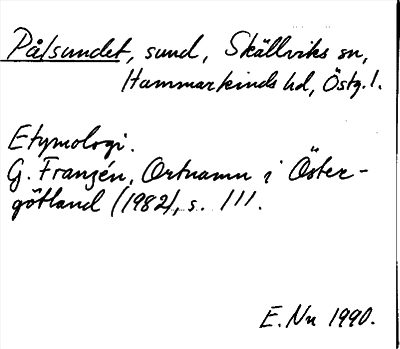 Pålsundet, sund, Skällviks sn,
Hammarkinds hd, Östg. l.
Etymologi.
G. Franzén, Ortnamn i Öster-
götland (1982), s. 111.
E. Nn 1990.